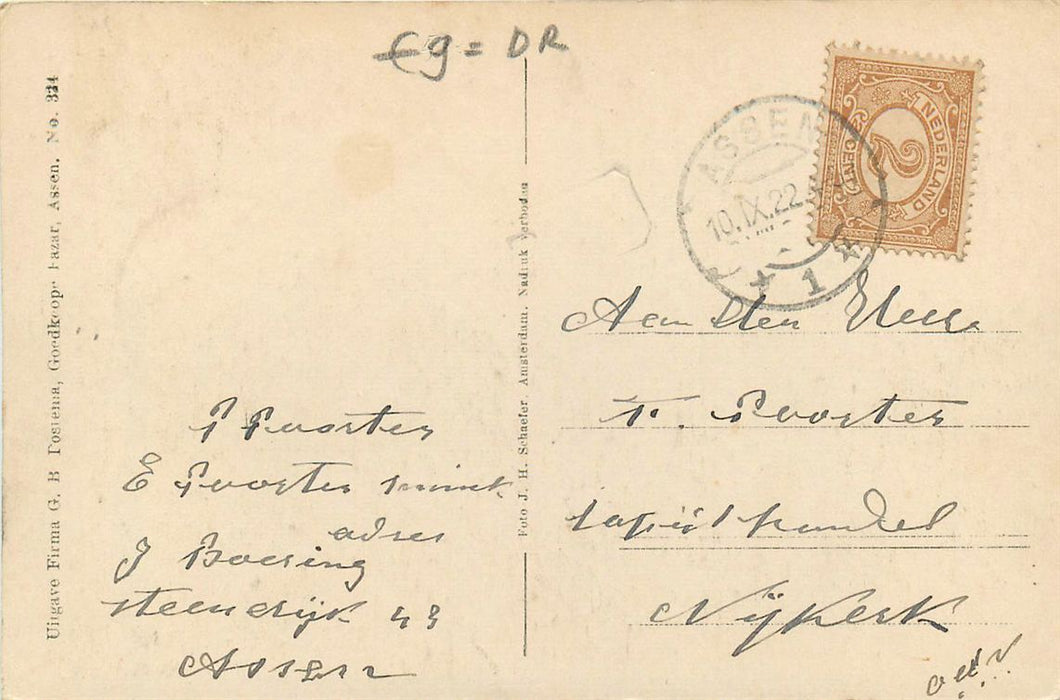 €9= DR
Uitgave Firma G. B. Postema, Goedkoope Bazar, Assen. No. 344
Foto J. H. Schaefer. Amsterdam. Nadruk verboden
ASSEN
10.IX.22
1
NEDERLAND
2
CENT
Aan den Heer
F. Poorter
tapijthandel
Nijkerk
P Poorter
E Poorter smink
adres
J Boering
steendijk 43
Assen